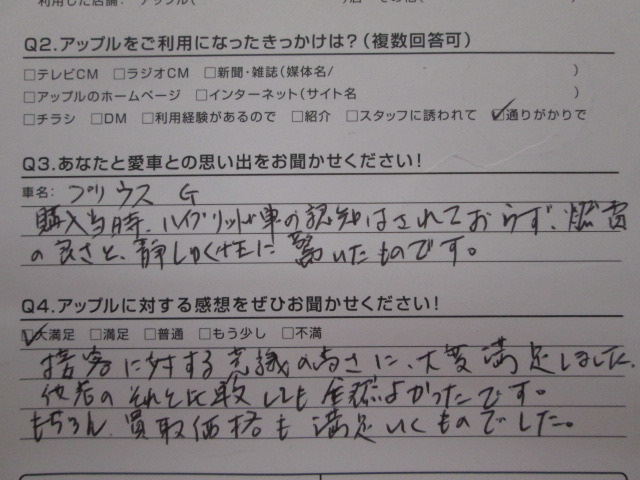 利用した店舗: アップル( )店・その他(
Q2.アップルをご利用になったきっかけは?(複数回答可)
□テレビCM □ラジオCM □新聞・雑誌(媒体名/ )
□アップルのホームページ □インターネット(サイト名 )
□チラシ □DM □利用経験があるので □紹介 □スタッフに誘われて ☑通りがかりで
Q3.あなたと愛車との思い出をお聞かせください!
車名: プリウス G
購入当時、ハイブリット車の認知はされておらず、燃費
の良さと、静しゅく性に驚いたものです。
Q4.アップルに対する感想をぜひお聞かせください!
☑大満足 □満足 □普通 □もう少し □不満
接客に対する意識の高さに、大変満足しました。
他者のそれと比較しても全然よかったです。
もちろん、買取価格も満足いくものでした。